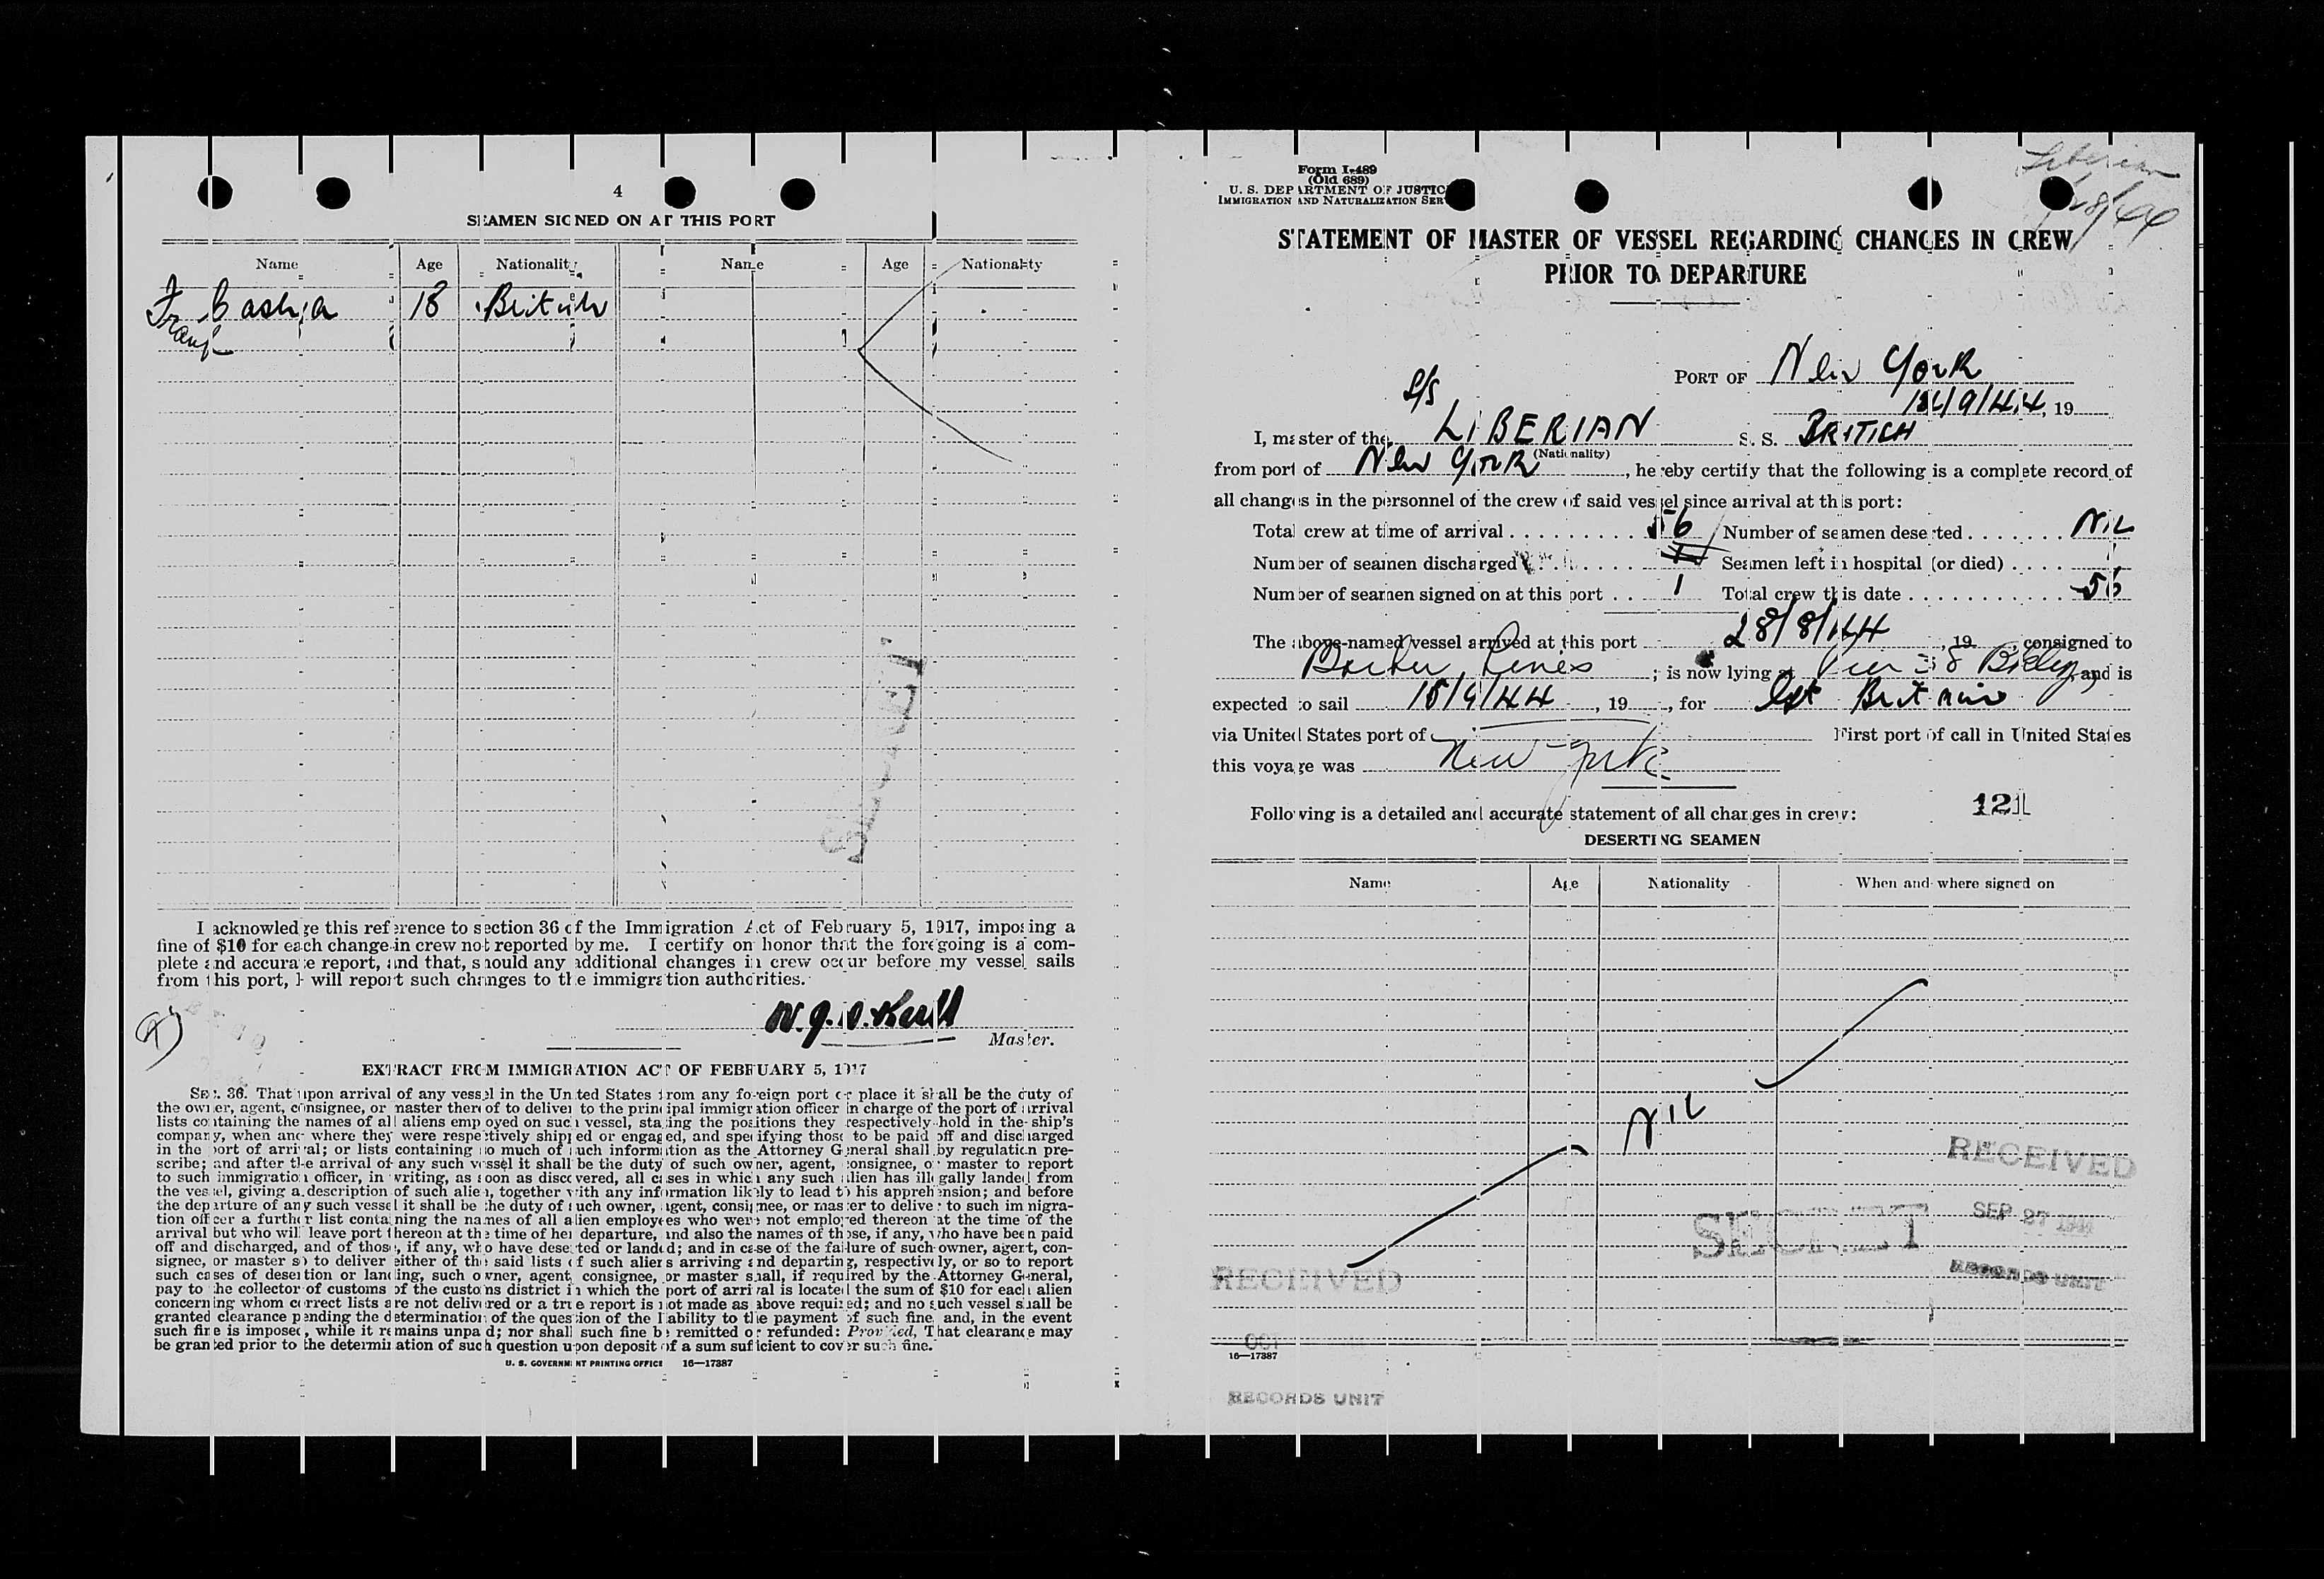 4
SEAMEN SIGNED ON AT THIS PORT
Name Age Nationality Name Age Nationality
Frank 18 British
I acknowledge this reference to section 36 of the Immigration Act of February 5, 1917, imposing a
fine of $10 for each change in crew not reported by me. I certify on honor that the foregoing is a com-
plete and accurate report, and that, should any additional changes in crew occur before my vessel sails
from this port, I will report such changes to the immigration authorities.
Master.
EXTRACT FROM IMMIGRATION ACT OF FEBRUARY 5, 1917
SEC. 36. That upon arrival of any vessel in the United States from any foreign port or place it shall be the duty of
the owner, agent, consignee, or master thereof to deliver to the principal immigration officer in charge of the port of arrival
lists containing the names of all aliens employed on such vessel, stating the positions they respectively hold in the ship's
company, when and where they were respectively shipped or engaged, and specifying those to be paid off and discharged
in the port of arrival; or lists containing so much of such information as the Attorney General shall by regulation pre-
scribe; and after the arrival of any such vessel it shall be the duty of such owner, agent, consignee, or master to report
to such immigration officer, in writing, as soon as discovered, all cases in which any such alien has illegally landed from
the vessel, giving a description of such alien, together with any information likely to lead to his apprehension; and before
the departure of any such vessel it shall be the duty of such owner, agent, consignee, or master to deliver to such immigra-
tion officer a further list containing the names of all alien employees who were not employed thereon at the time of the
arrival but who will leave port thereon at the time of her departure, and also the names of those, if any, who have been paid
off and discharged, and of those, if any, who have deserted or landed; and in case of the failure of such owner, agent, con-
signee, or master so to deliver either of the said lists of such aliens arriving and departing, respectively, or so to report
such cases of desertion or landing, such owner, agent, consignee, or master shall, if required by the Attorney General,
pay to the collector of customs of the customs district in which the port of arrival is located the sum of $10 for each alien
concerning whom correct lists are not delivered or a true report is not made as above required; and no such vessel shall be
granted clearance pending the determination of the question of the liability to the payment of such fine, and, in the event
such fine is imposed, while it remains unpaid; nor shall such fine be remitted or refunded: Provided, That clearance may
be granted prior to the determination of such question upon deposit of a sum sufficient to cover such fine.
U. S. GOVERNMENT PRINTING OFFICE 16—17387
SECRET
Form I-489
(Old 689)
U. S. DEPARTMENT OF JUSTICE
IMMIGRATION AND NATURALIZATION SER
Liberian
STATEMENT OF MASTER OF VESSEL REGARDING CHANGES IN CREW
PRIOR TO DEPARTURE
PORT OF New York
, 19
S/S
I, master of the LIBERIAN S. S. BRITICH
(Nationality)
from port of New York, hereby certify that the following is a complete record of
all changes in the personnel of the crew of said vessel since arrival at this port:
Total crew at time of arrival 56 Number of seamen deserted NIL
Number of seamen discharged Seamen left in hospital (or died) 1
Number of seamen signed on at this port 1 Total crew this date 56
The above-named vessel arrived at this port 28/8/44, 19 consigned to
Barber Lines; is now lying at Pier 38 Bklyn, and is
expected to sail 15/9/44, 19, for Gt Britain
via United States port of First port of call in United States
this voyage was New York
121
Following is a detailed and accurate statement of all changes in crew:
DESERTING SEAMEN
Name Age Nationality When and where signed on
NIL
RECEIVED
SEP 27 1944
RECORDS UNIT
SECRET
RECEIVED
OCT
16—17387
RECORDS UNIT